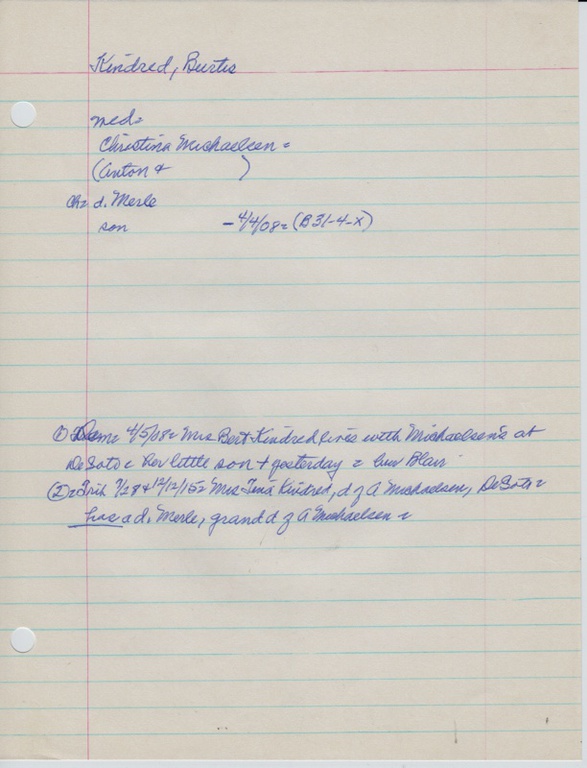 Kindred, Burtis
med=
Christina Michaelsen =
(Anton &        )
Ch= d. Merle
son        - 4/4/08 = (B31-4-X)
① = Dem = 4/5/08 = Mrs Bert Kindred lives with Michaelsen's at
DeSoto = her little son + yesterday = bur Blair
② = Trib 7/28 & 12/12/15 = Mrs Tina Kindred, d of A Michaelsen, DeSoto =
has a d. Merle, grand d of A Michaelsen =